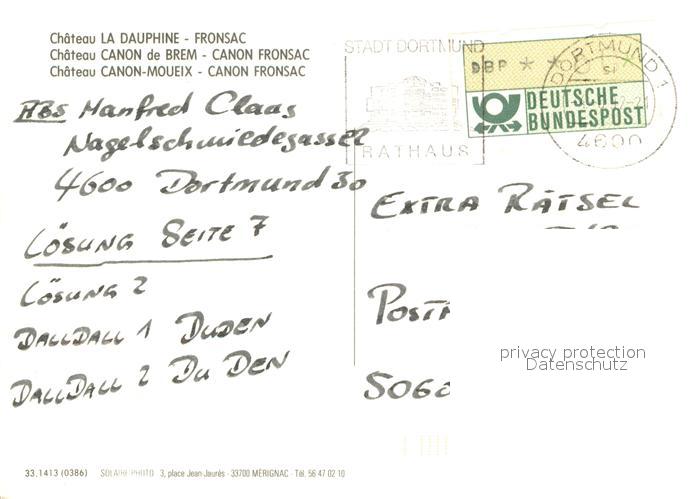 Château LA DAUPHINE - FRONSAC
Château CANON de BREM - CANON FRONSAC
Château CANON-MOUEIX - CANON FRONSAC
STADT DORTMUND
RATHAUS
DBP * *
DEUTSCHE
BUNDESPOST
DORTMUND 1
4600
Abs Manfred Claas
Nagelschmiedegasse 2
4600 Dortmund 30
LÖSUNG SEITE 7
LÖSUNG 2
DALLDALL 1 DUDEN
DALLDALL 2 DU DEN
EXTRA RÄTSEL
POST
506
privacy protection
Datenschutz
33.1413 (0386) SOLAIRE PHOTO 3, place Jean-Jaurès - 33700 MÉRIGNAC - Tél. 56 47 02 10